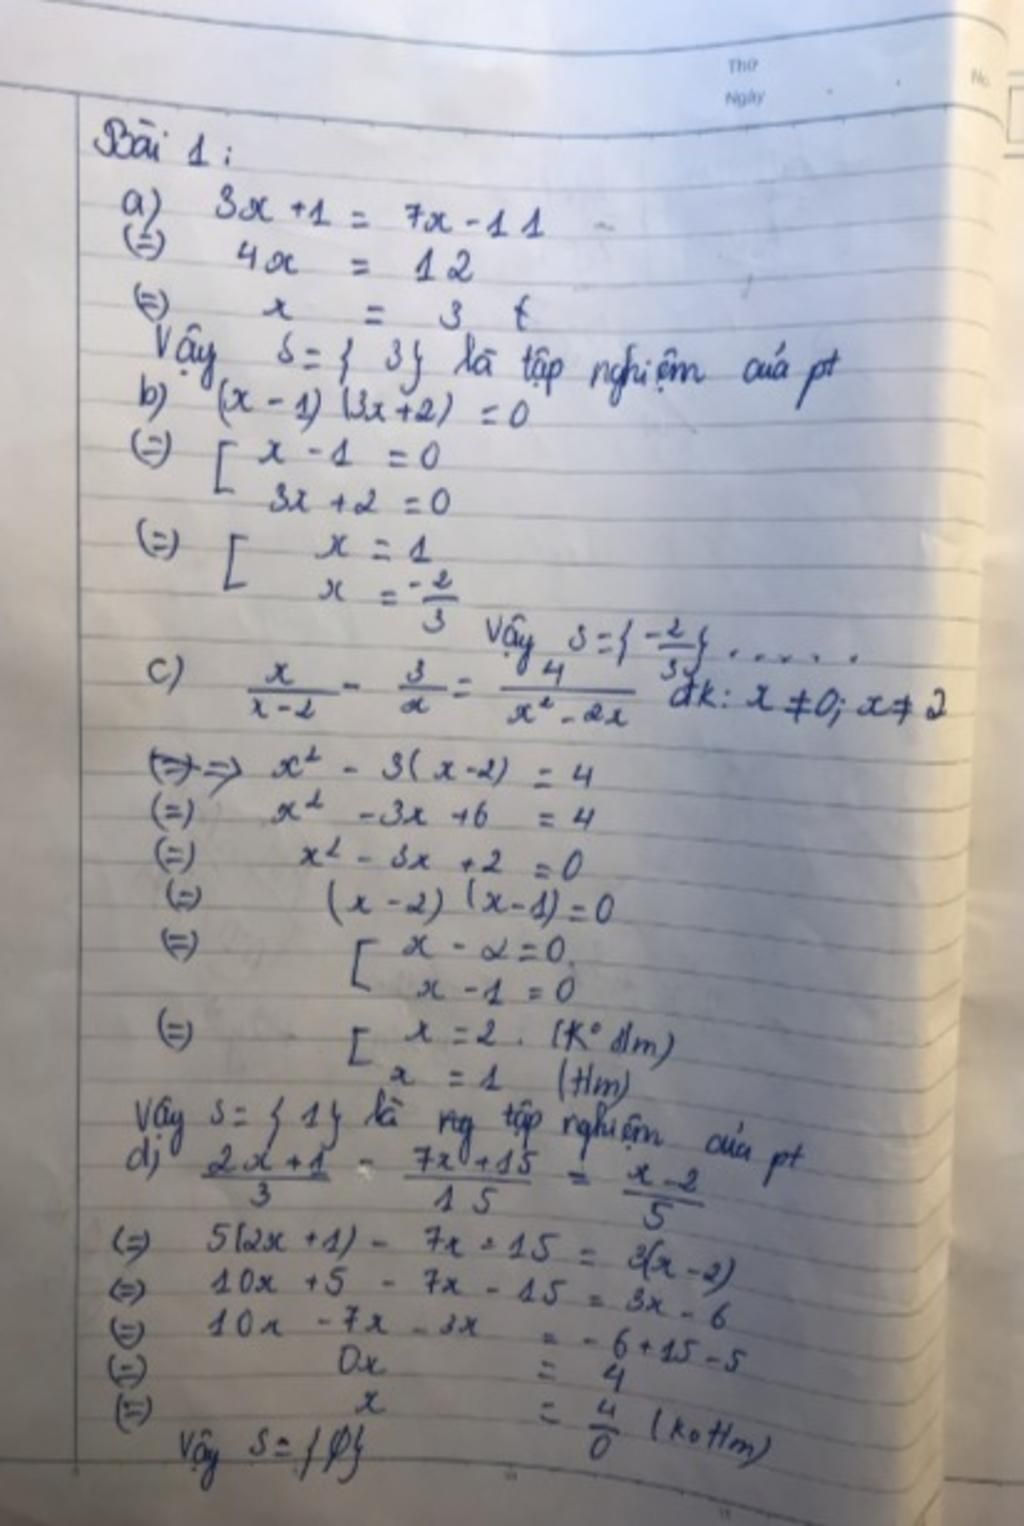 Thứ
Ngày
No.
Bài 1:
a) 3x + 1 = 7x - 11
(=) 4x = 12
(=) x = 3
Vậy S = { 3} là tập nghiệm của pt
b) (x - 1) (3x + 2) = 0
(=) [ x - 1 = 0
3x + 2 = 0
(=) [ x = 1
x = -2/3
Vậy S = { -2/3 } . . . . .
c) x/(x-2) - 3/x = 4/(x² - 2x) đk: x ≠ 0; x ≠ 2
=> x² - 3(x-2) = 4
(=) x² - 3x + 6 = 4
(=) x² - 3x + 2 = 0
(=) (x - 2) (x - 1) = 0
(=) [ x - 2 = 0
x - 1 = 0
(=) [ x = 2 . (K° tlm)
x = 1 (tlm)
Vậy S = { 1} là ng tập nghiệm của pt
d) (2x + 1)/3 - (7x + 15)/15 = (x - 2)/5
(=) 5(2x + 1) - 7x - 15 = 3(x - 2)
(=) 10x + 5 - 7x - 15 = 3x - 6
(=) 10x - 7x - 3x = - 6 + 15 - 5
(=) 0x = 4
(=) x = 4/0 (ko tlm)
Vậy S = {∅}